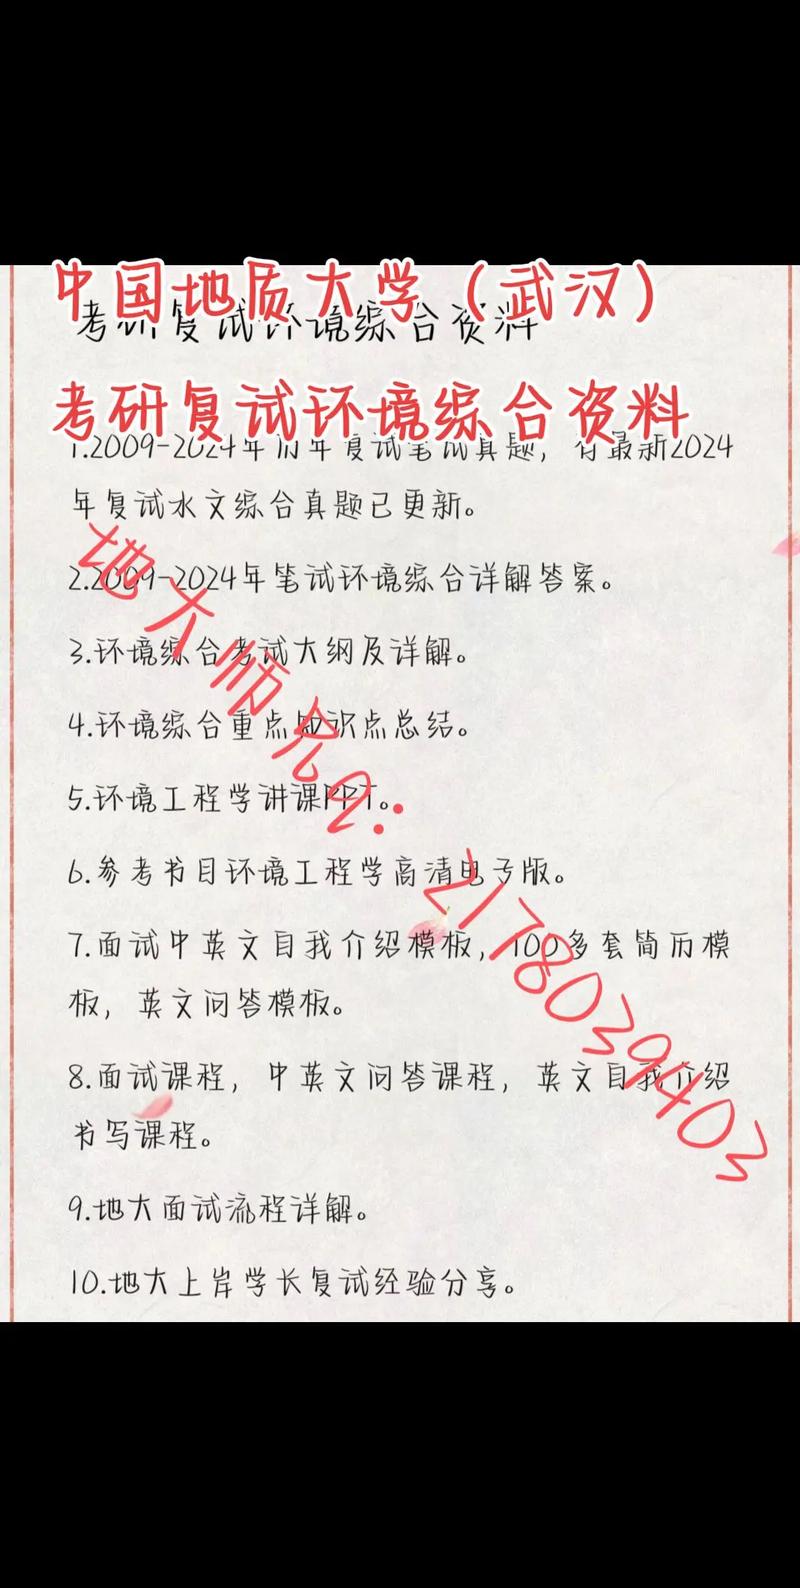 中国地质大学（武汉）
考研复试环境综合资料
考研复试环境综合资料
1.2009-2024年历年复试笔试真题，有最新2024
年复试水文综合真题已更新。
2.2009-2024年笔试环境综合详解答案。
3.环境综合考试大纲及详解。
4.环境综合重点知识点总结。
5.环境工程学讲课PPT。
6.参考书目环境工程学高清电子版。
7.面试中英文自我介绍模板，100多套简历模
板，英文问答模板。
8.面试课程，中英文问答课程，英文自我介绍
书写课程。
9.地大面试流程详解。
10.地大上岸学长复试经验分享。
地大师兄Q：2178039403